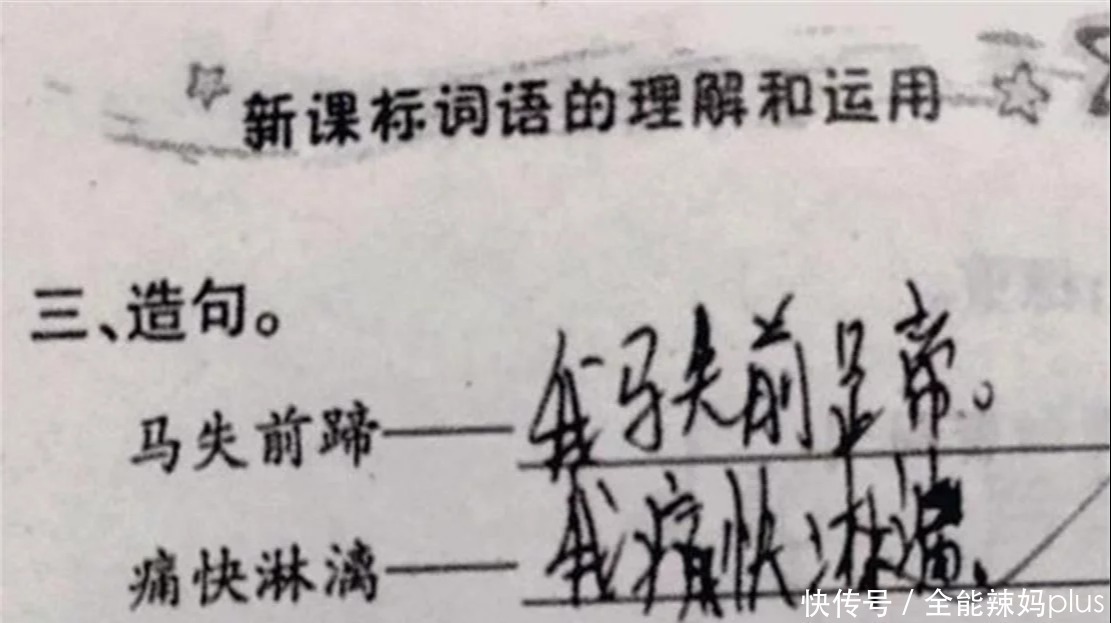 新课标词语的理解和运用
三、造句。
马失前蹄——我马失前蹄。
痛快淋漓——我痛快淋漓。
快传号 / 全能辣妈plus